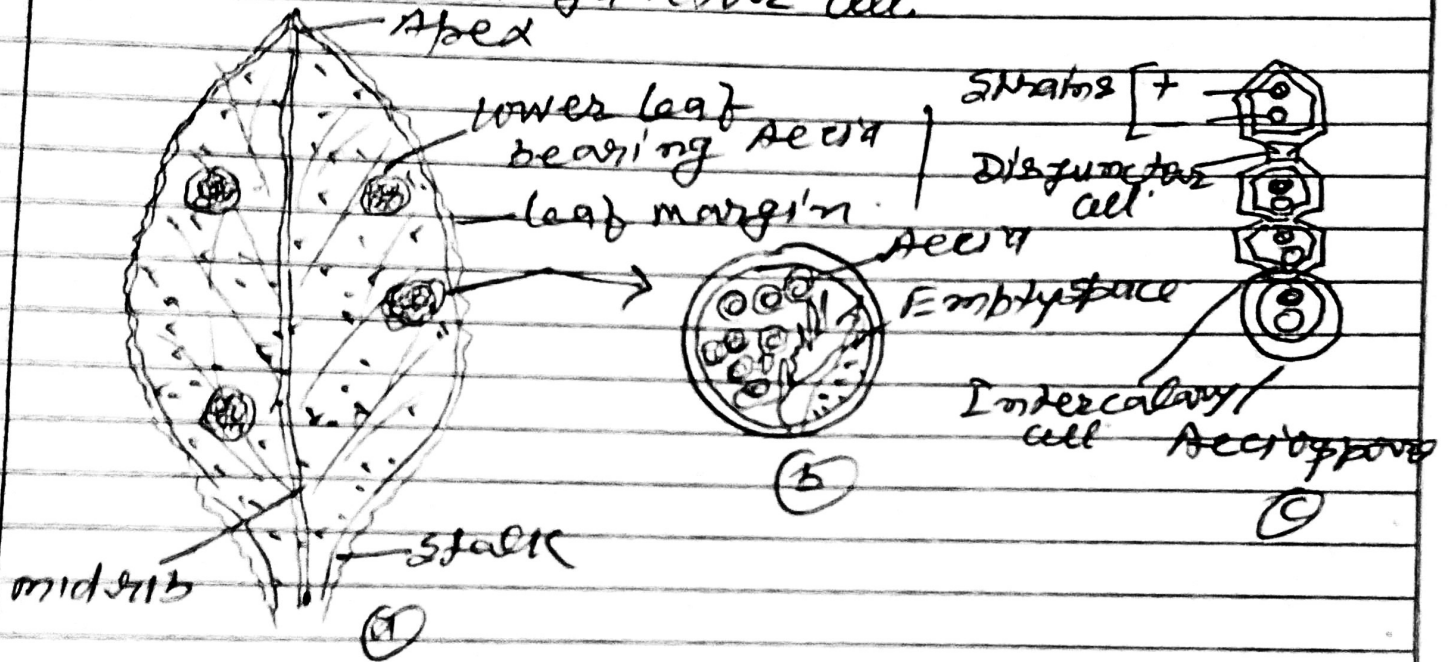 cell.
Apex
lower leaf
bearing Aecia
leaf margin.
midrib
stalk
a
Aecia
Empty space
b
Strains [ +
−
Disjunctor
cell.
Intercalary
cell
Aeciospore
c